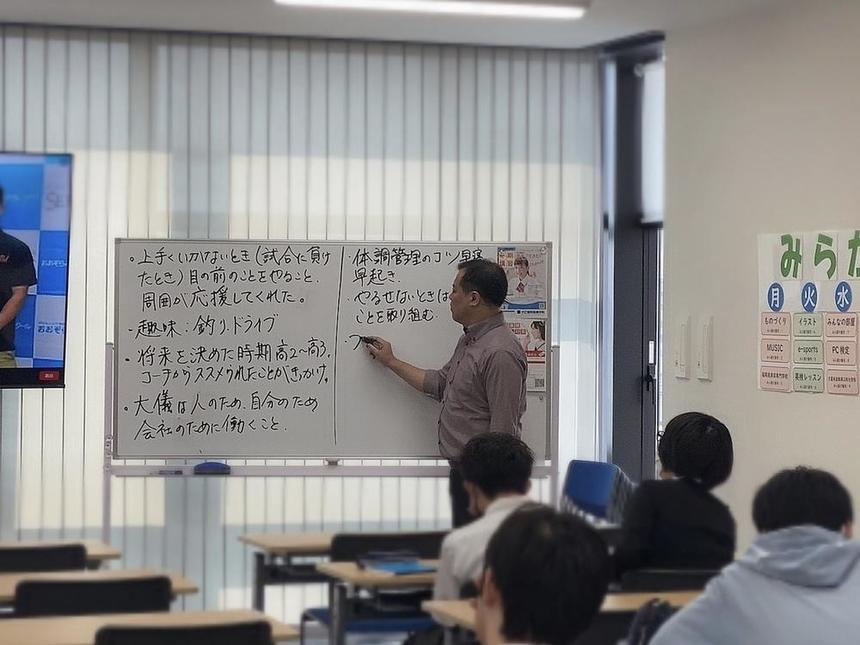 ・上手くいかないとき(試合に負け
たとき)目の前のことをやること、
周囲が応援してくれた。
・趣味:釣り、ドライブ
・将来を決めた時期高2〜高3.
コーチからススメられたことがきっかけ。
・大儀は人のため、自分のため
会社のために働くこと.
・体調管理のコツ早寝
早起き
・やるせないときは
ことを取り組む
みらか
月 火 水
ものづくり イラスト みんなの部屋
MUSIC e-sports PC検定
英検レッスン